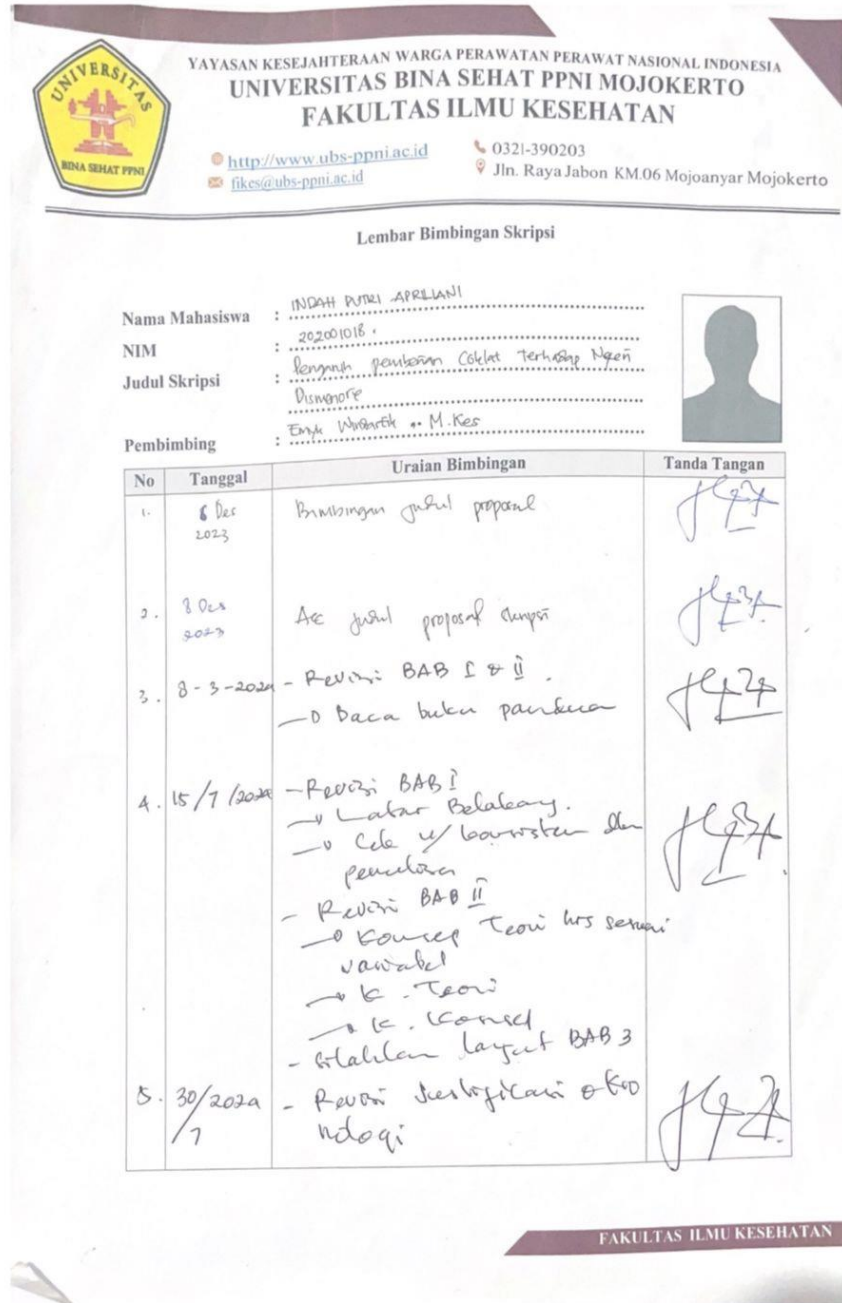 YAYASAN KESEJAHTERAAN WARGA PERAWATAN PERAWAT NASIONAL INDONESIA
UNIVERSITAS BINA SEHAT PPNI MOJOKERTO
FAKULTAS ILMU KESEHATAN
UNIVERSITAS
BINA SEHAT PPNI
http://www.ubs-ppni.ac.id
0321-390203
fikes@ubs-ppni.ac.id
Jln. Raya Jabon KM.06 Mojoanyar Mojokerto
Lembar Bimbingan Skripsi
Nama Mahasiswa : INDAH PUTRI APRILIANI
NIM : 202001018
Judul Skripsi : Pengaruh pemberian Coklat Terhadap Nyeri
Dismenore
Pembimbing : M.Kes
No Tanggal Uraian Bimbingan Tanda Tangan
1. 6 Des Bimbingan judul proposal
2023
2. 8 Des Acc judul proposal skripsi
2023
3. 8-3-2024 - Revisi BAB I & II.
Baca buku panduan
4. 15/7/2024 - Revisi BAB I
Latar Belakang.
Cek
- Revisi BAB II
Konsep Teori hrs sesuai
variabel
K. Teori
K. Konsep
- Silahkan lanjut BAB 3
5. 30/2024 - Revisi Justifikasi & kro
/7 nologi
FAKULTAS ILMU KESEHATAN